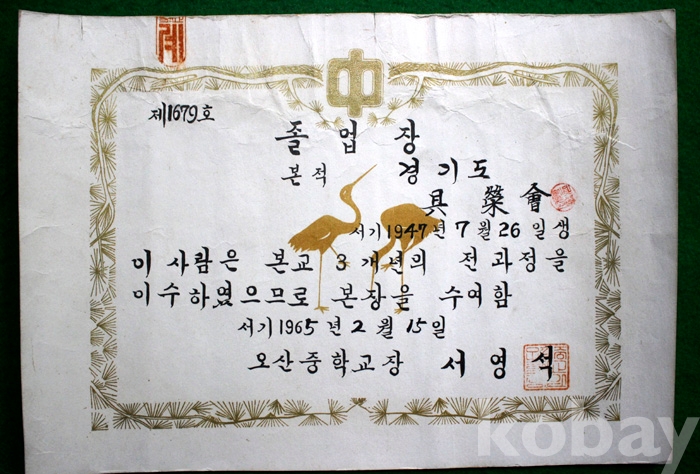 中
제1679호
졸업장
본적 경기도
具榮會
서기1947년7월26일생
이 사람은 본교 3개년의 전과정을
이수하였으므로 본장을 수여함
서기1965년2월15일
오산중학교장 서영석
kobay